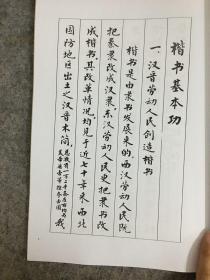 楷书基本功
一、汉晋劳动人民创造楷书
楷书是由隶书发展来的，西汉劳动人民既
把秦隶改成汉隶，东汉劳动人民史把隶书改
成楷书。其改革情况，均见于近七十年来西北
国防地区出土之汉晋木简，
我